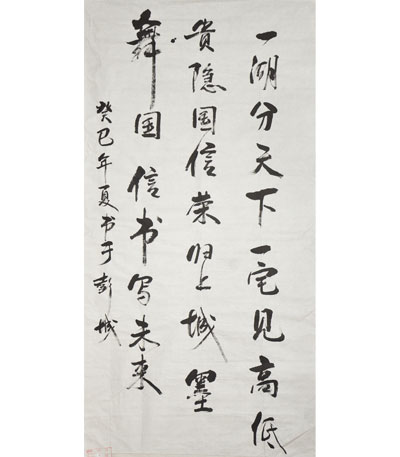 一湖分天下一宅见高低
贵隐国信荣归上城墨
舞国信书写未来
癸巳年夏书于彭城